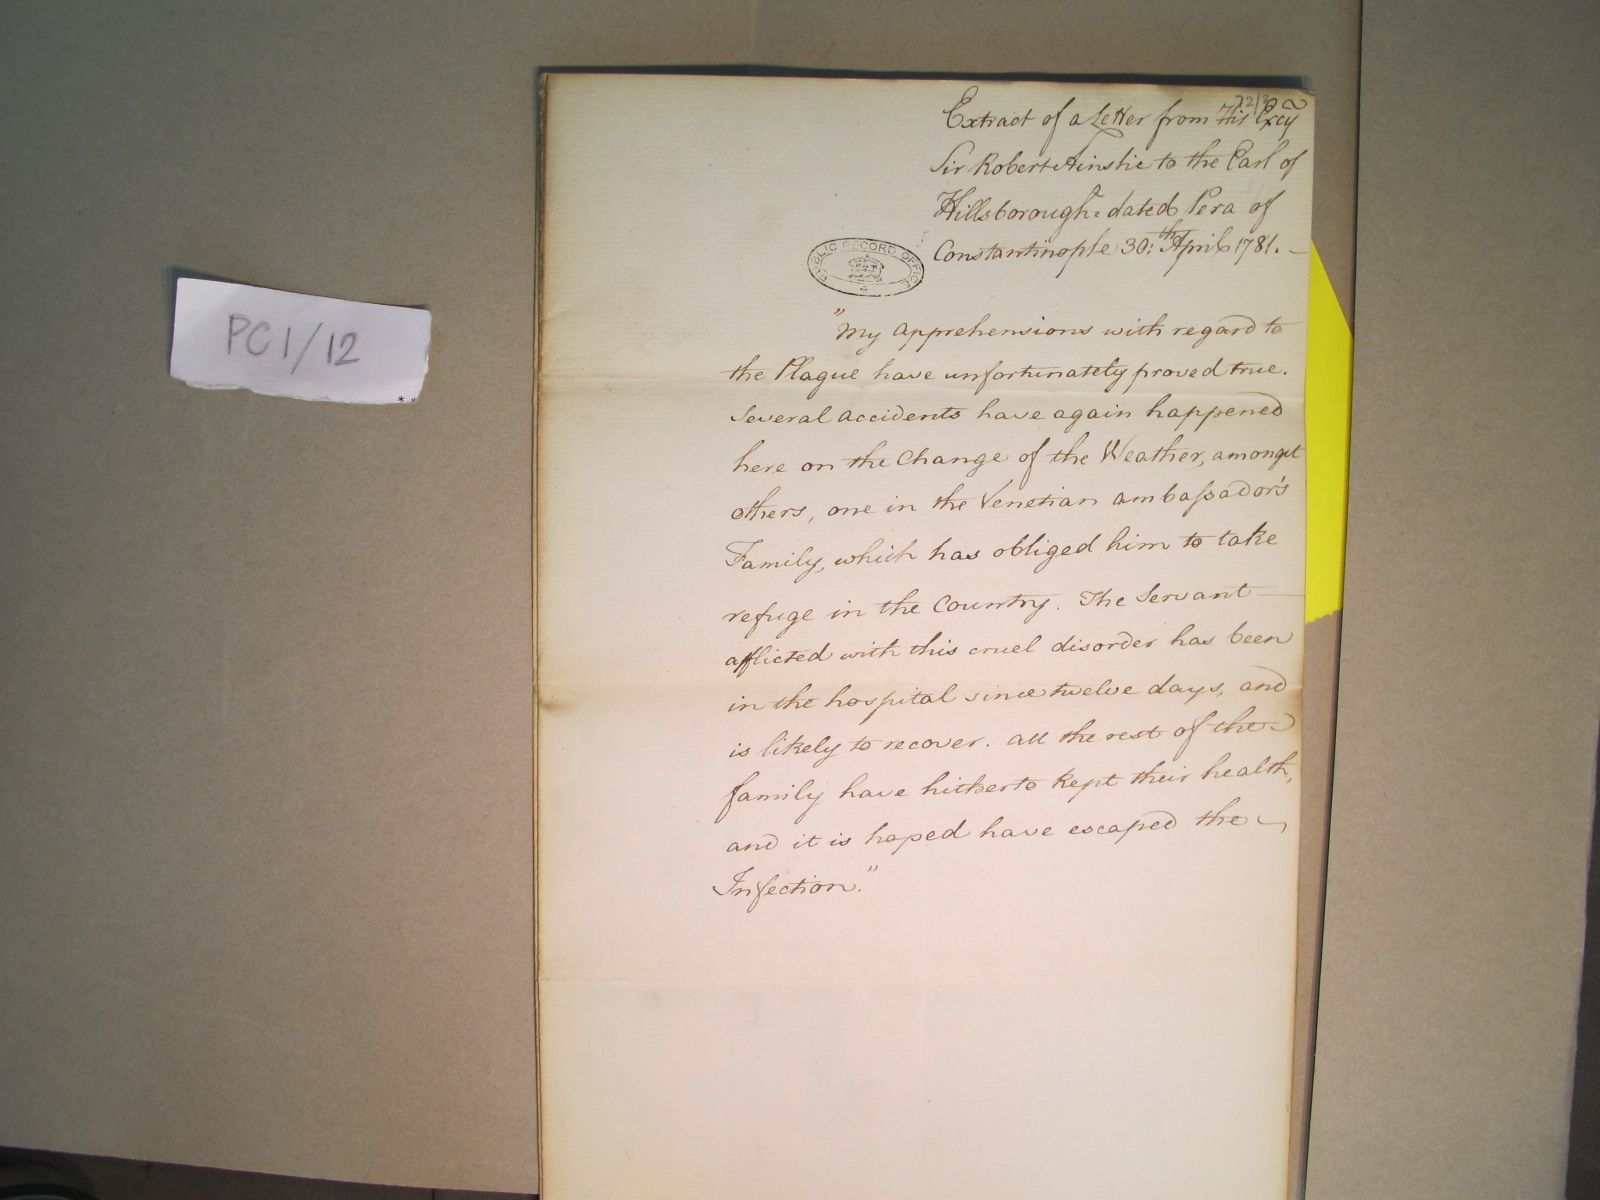 Extract of a Letter from His Excy
Sir Robert Ainslie to the Earl of
Hillsborough. dated Pera of
Constantinople 30:th April 1781. –
PUBLIC RECORD OFFICE
PC 1/12
"My apprehensions with regard to
the Plague have unfortunately proved true.
Several accidents have again happened
here on the Change of the Weather, amongst
others, one in the Venetian ambassador's
Family, which has obliged him to take
refuge in the Country. The Servant
afflicted with this cruel disorder has been
in the hospital since twelve days, and
is likely to recover. all the rest of the
family have hitherto kept their health,
and it is hoped have escaped the
Infection."